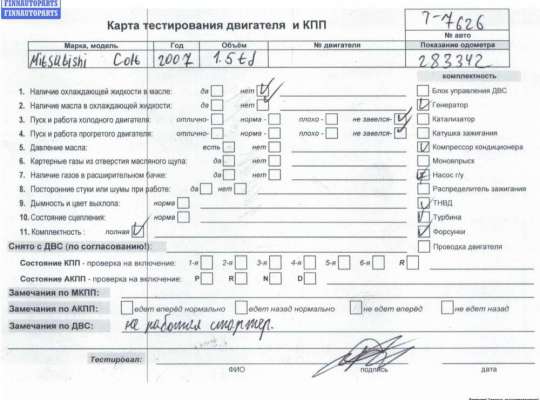 FINNAUTOPARTS
FINNAUTOPARTS
Карта тестирования двигателя и КПП
7-7626
№ авто
Марка, модель Год Объём № двигателя Показание одометра
Mitsubishi Colt 2007 1.5td 283342
комплектность
1. Наличие охлаждающей жидкости в масле: да нет Блок управления ДВС
2. Наличие масла в охлаждающей жидкости: да нет Генератор
3. Пуск и работа холодного двигателя: отлично- норма - плохо - не завелся- Катализатор
4. Пуск и работа прогретого двигателя: отлично- норма - плохо - не завелся- Катушка зажигания
5. Давление масла: есть - нет Компрессор кондиционера
6. Картерные газы из отверстия масляного щупа: да нет Моновпрыск
7. Наличие газов в расширительном бачке: да нет Насос г/у
8. Посторонние стуки или шумы при работе: да нет Распределитель зажигания
9. Дымность и цвет выхлопа: норма ТНВД
10. Состояние сцепления: норма Турбина
11. Комплектность : полная Форсунки
Снято с ДВС (по согласованию!): Проводка двигателя
Состояние КПП - проверка на включение: 1-я 2-я 3-я 4-я 5-я 6-я R
Состояние АКПП - проверка на включение: P R N D
Замечания по МКПП:
Замечания по АКПП: едет вперёд нормально едет назад нормально не едет вперёд не едет назад
Замечания по ДВС: не работал стартер.
Тестировал:
ФИО подпись дата